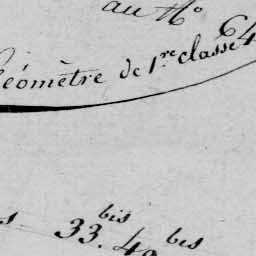 au N°
Géomètre de 1re classe 64
33.bis 49 bis